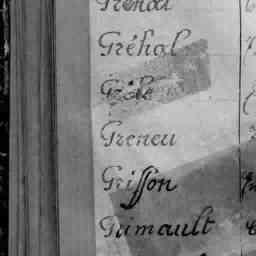 Gréhal
Gréhal
Grêle
Greneu
Grisson
Grimault